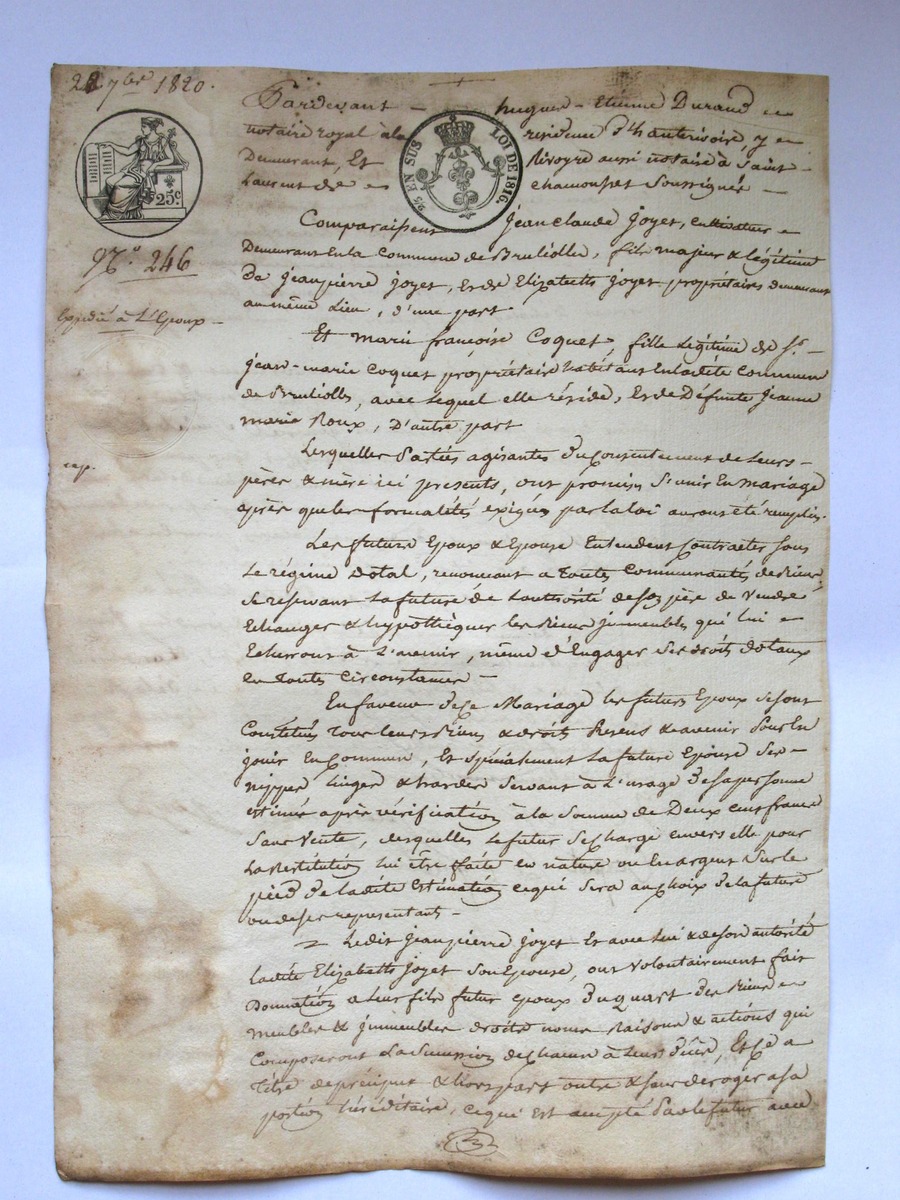 22 7bre 1820.
Pardevant hugues Etienne Durand
notaire royal à la residence d'hauterivoire y
Demeurant, Et Révoyre aussi notaire à Saint
Laurent de chamousset Soussignés
25 EN SUS LOI DE 1816.
25c
No. 246
Expedié à L'Epoux
Comparaissent Jean Claude Joyet, Cultivateur
Demeurant En la Commune de Brullolle, fils majeur & légitime
De Jeanpierre Joyet, Et de Elizabeth Joyet propriétaires demeurant
au même Lieu, d'une part
Et marie françoise Coquet, fille Légitime de Sr.
jean-marie Coquet propriétaire habitant En ladite Commune
de Brullolle, avec Lequel elle réside, Et de Défunte Jeanne
marie Roux, D'autre part
cap.
Lesquelles Parties agissantes Du Consentement de Leurs
pères & mère ici presents, ont promis S'unir En mariage
après que les formalités exigées par la loi auront été remplies.
Les future Epoux & Epouse Entendent Contracter Sous
Le régime Dotal, renoncant a Toutes Communautés de Biens
Se reservant La future de Lauthorité de Son père de Vendre
Echanger & hypothèquer les Biens Jmmeubles qui lui
Echerront à L'avenir, même d'Engager Ses droits dotaux
En Toutes Circonstances
En faveur de Ce Mariage les futurs Epoux Se sont
Constitués Tous leurs Biens & droits Presens & avenir Pour En
jouir En Commun, Et Spécialement La future Epouse Ses
nippes Linges & hardes Servant à L'usage De Sa personne
estimés après vérification à la Somme de Deux cent francs
Sans Vente, desquelles Le futur Se Charge envers elle pour
La Restitution lui être faite en nature ou En argent Sur le
pied De Ladite Estimation ce qui Sera au choix de la future
ou de ses representants
Ledit Jeanpierre Joyet Et avec Lui & de son autorité
Ladite Elizabeth Joyet Son Epouse, ont Volontairement fait
Donnation a Leur fils futur epoux Du quart Des Biens
meubles & Jmmeubles droits noms Raisons & actions qui
Composeront La Succession de Chacun à Leurs Décès, Et Ce a
Titre de préciput & hors part outre & Sans deroger a Sa
portion héréditaire, ce qui Est accepté Par le futur avec